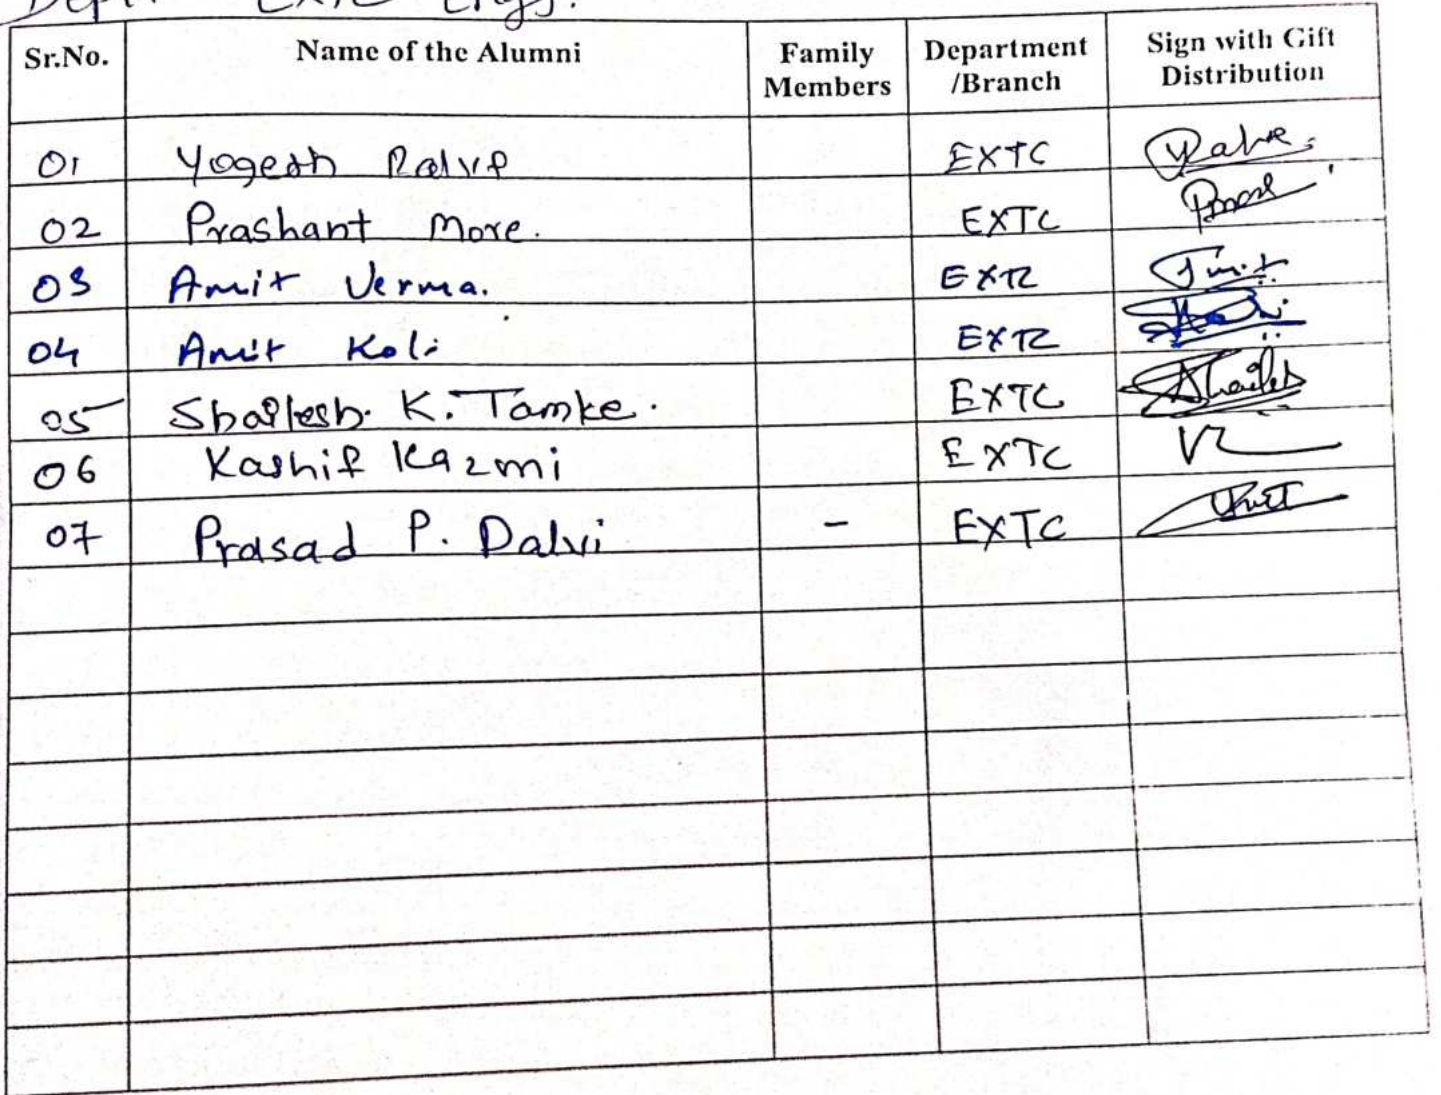 Dept. EXTC Engg.
Sr.No. Name of the Alumni Family Members Department /Branch Sign with Gift Distribution
01 Yogesh Ralve EXTC
02 Prashant More. EXTC
03 Amit Verma. EXTC
04 Amit Koli EXTC
05 Shailesh K. Tamke. EXTC
06 Kashif Kazmi EXTC
07 Prasad P. Dalvi - EXTC